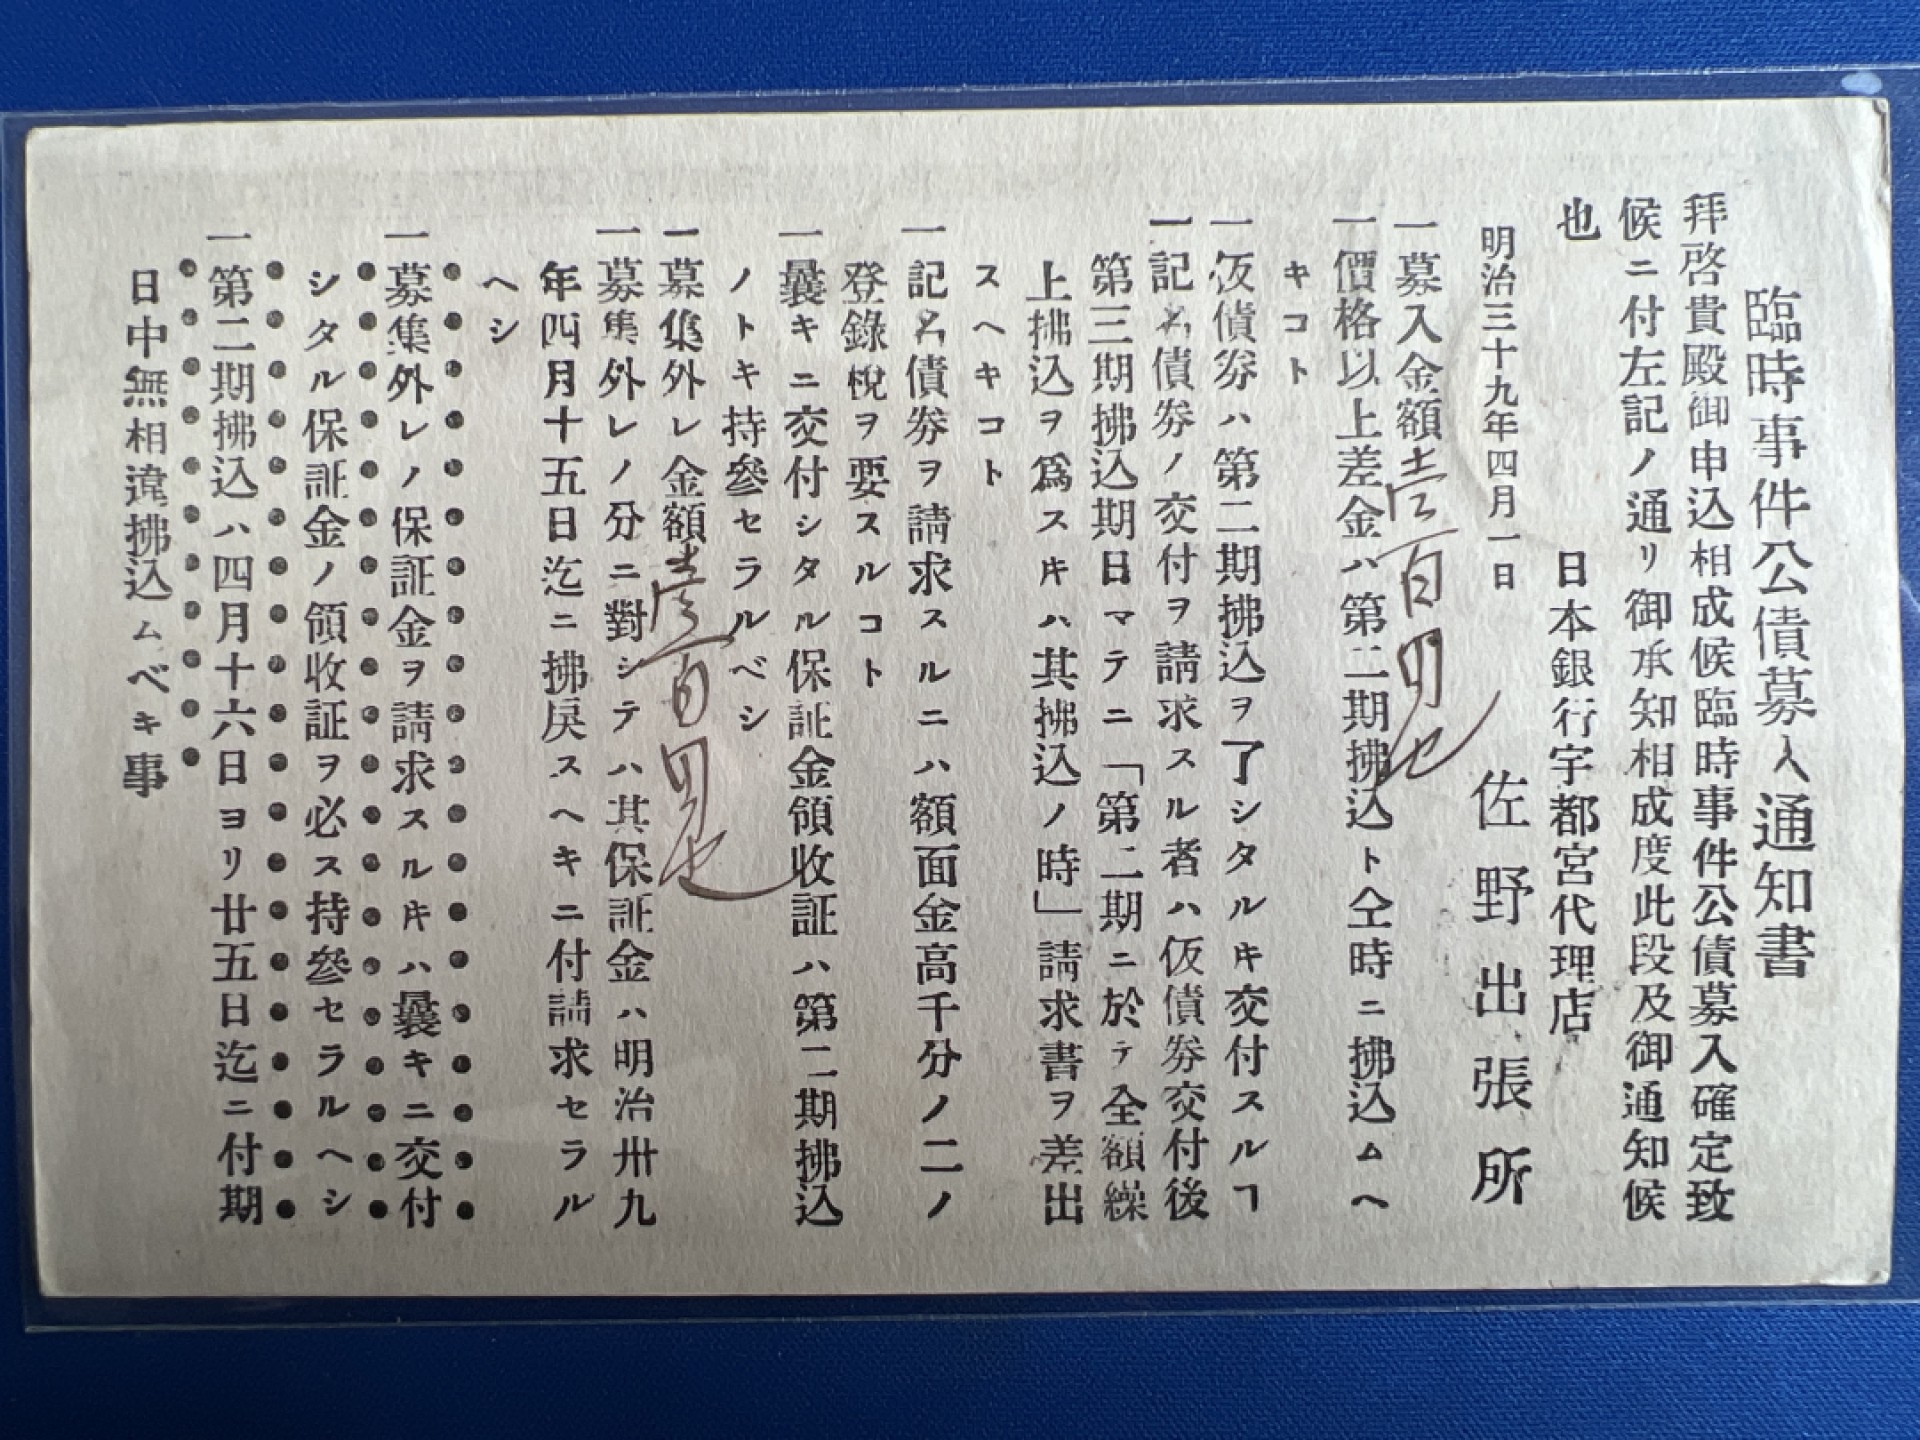 臨時事件公債募入通知書
拜啓貴殿御申込相成候臨時事件公債募入確定致
候ニ付左記ノ通リ御承知相成度此段及御通知候
也
日本銀行宇都宮代理店
明治三十九年四月一日
佐野出張所
一募入金額壱百円也
一價格以上差金ハ第二期拂込ト仝時ニ拂込ムヘ
キコト
一仮債券ハ第二期拂込ヲ了シタルキ交付スルヿ
一記名債券ノ交付ヲ請求スル者ハ仮債券交付後
第三期拂込期日マテニ「第二期ニ於テ全額繰
上拂込ヲ爲スキハ其拂込ノ時」請求書ヲ差出
スヘキコト
一記名債券ヲ請求スルニハ額面金高千分ノ二ノ
登錄稅ヲ要スルコト
一曩キニ交付シタル保証金領收証ハ第二期拂込
ノトキ持參セラルベシ
一募集外レ金額壱百円也
一募集外レノ分ニ對シテハ其保証金ハ明治卅九
年四月十五日迄ニ拂戻スヘキニ付請求セラル
ヘシ
一募集外レノ保証金ヲ請求スルキハ曩キニ交付
シタル保証金ノ領收証ヲ必ス持參セラルヘシ
一第二期拂込ハ四月十六日ヨリ廿五日迄ニ付期
日中無相違拂込ムベキ事